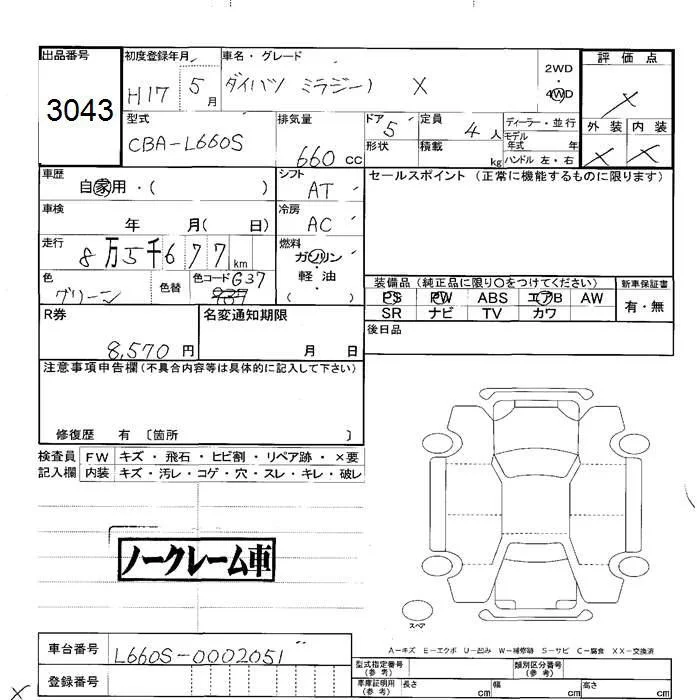 出品番号 初度登録年月 車名・グレード 評価点
3043 H17 5月 ダイハツ ミラジーノ X 2WD 4WD X
型式 排気量 ドア 定員 ディーラー・並行 外装 内装
CBA-L660S 660cc 5 4人 モデル年式 年 X X
形状 積載 kg ハンドル 左・右
車歴 シフト セールスポイント (正常に機能するものに限ります)
自家用・( ) AT
車検 冷房
年 月( 日) AC
走行 燃料
8万5千677km ガソリン・軽油
色 色替 色コード G37
グリーン
装備品(純正品に限り○をつけてください) 新車保証書
PS PW ABS エアB AW 有・無
SR ナビ TV カワ
R券 名変通知期限 後日品
8,570円 月 日
注意事項申告欄(不具合内容等は具体的に記入して下さい)
修復歴 有 〔箇所 〕
検査員 FW キズ・飛石・ヒビ割・リペア跡・×要
記入欄 内装 キズ・汚レ・コゲ・穴・スレ・キレ・破レ
ノークレーム車
スペア
A-キズ E-エクボ U-凹み W-補修跡 S-サビ C-腐食 XX-交換済
車台番号 L660S-0002051
登録番号
型式指定番号(参考) 類別区分番号(参考)
車庫証明用(参考) 長さ cm 幅 cm 高さ cm
X